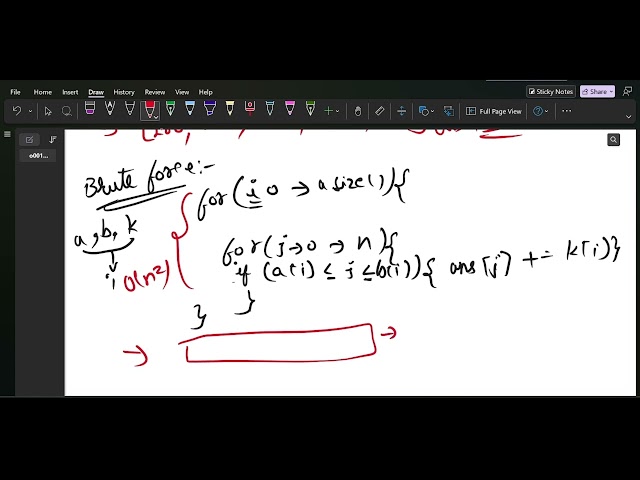 File Home Insert Draw History Review View Help
Sticky Notes Share
Full Page View
o001...
Brute force:-
for (i 0 → a size()){
a, b, k
i
O(n²)
for (j→0 → n){
if (a(i) ≤ j ≤ b(i)){ ans[j] += k[i]}
}
}